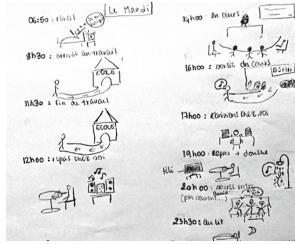 Le Mardi
06h50 : réveil
8h30 : arrivée au travail
ECOLE
11h30 : fin du travail
ECOLE
12h00 : repas chez soi
14h00 : en cours
16h00 : sortie des cours
17h00 :
19h00 : Repas + douche
télé
20h00 : soirée
23h30 : au lit